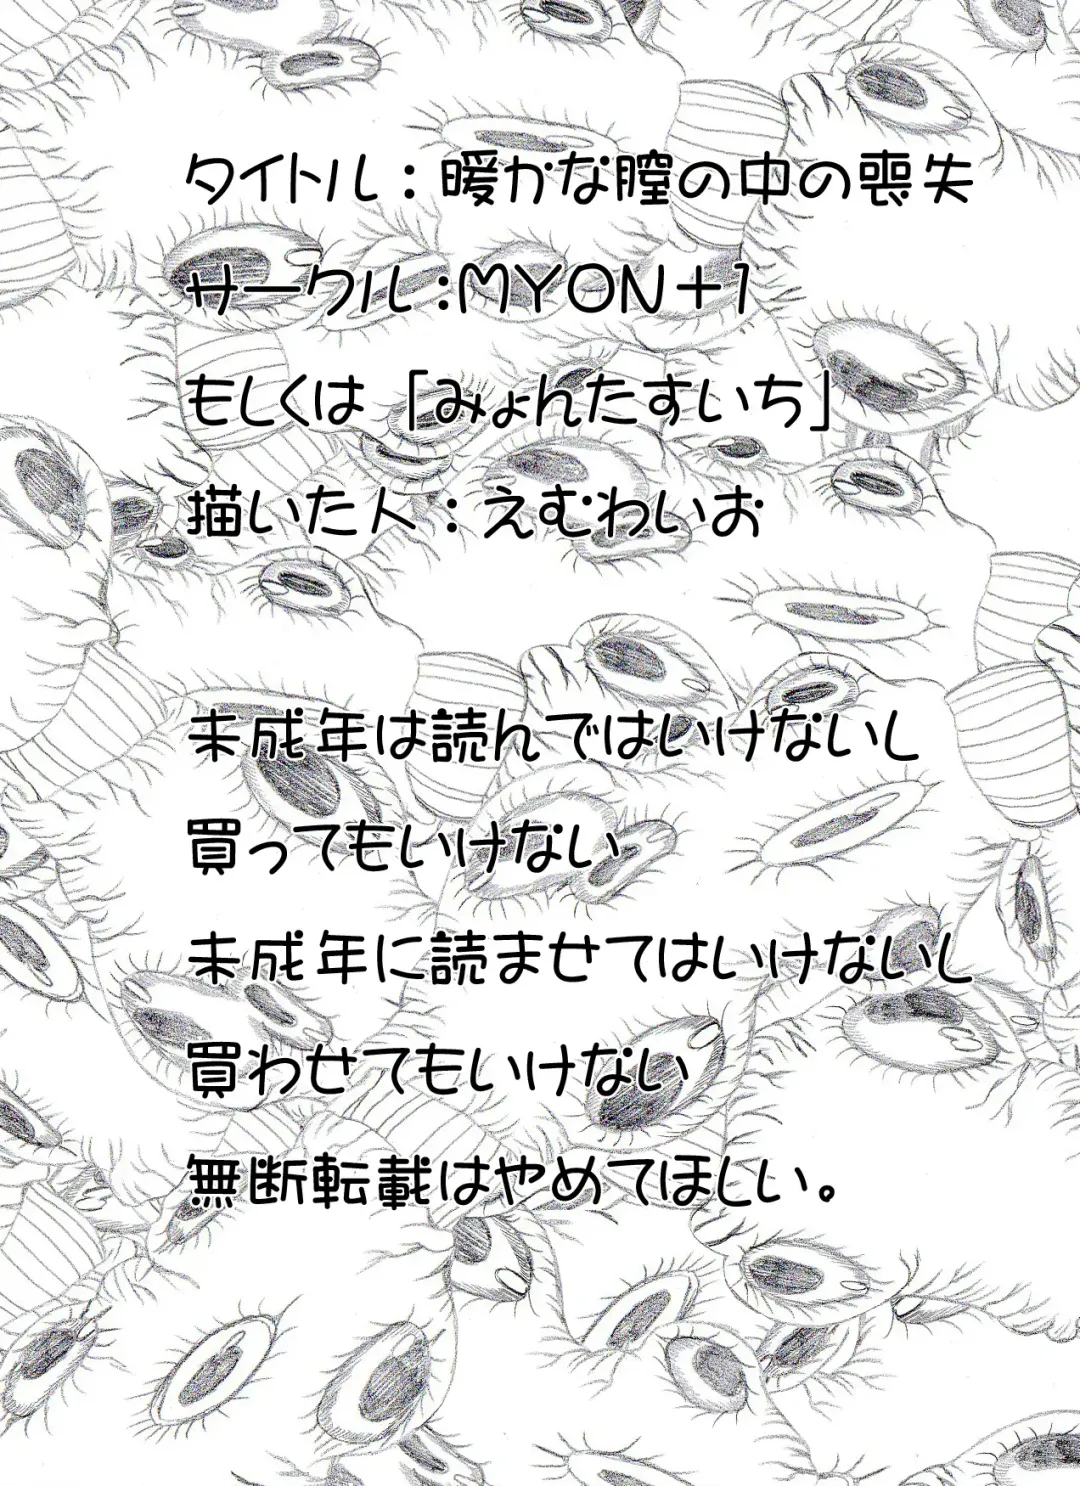 タイトル：暖かな膣の中の喪失
サークル：MYON+1
もしくは「みょんたすいち」
描いた人：えむわいお
未成年は読んではいけないし
買ってもいけない
未成年に読ませてはいけないし
買わせてもいけない
無断転載はやめてほしい。